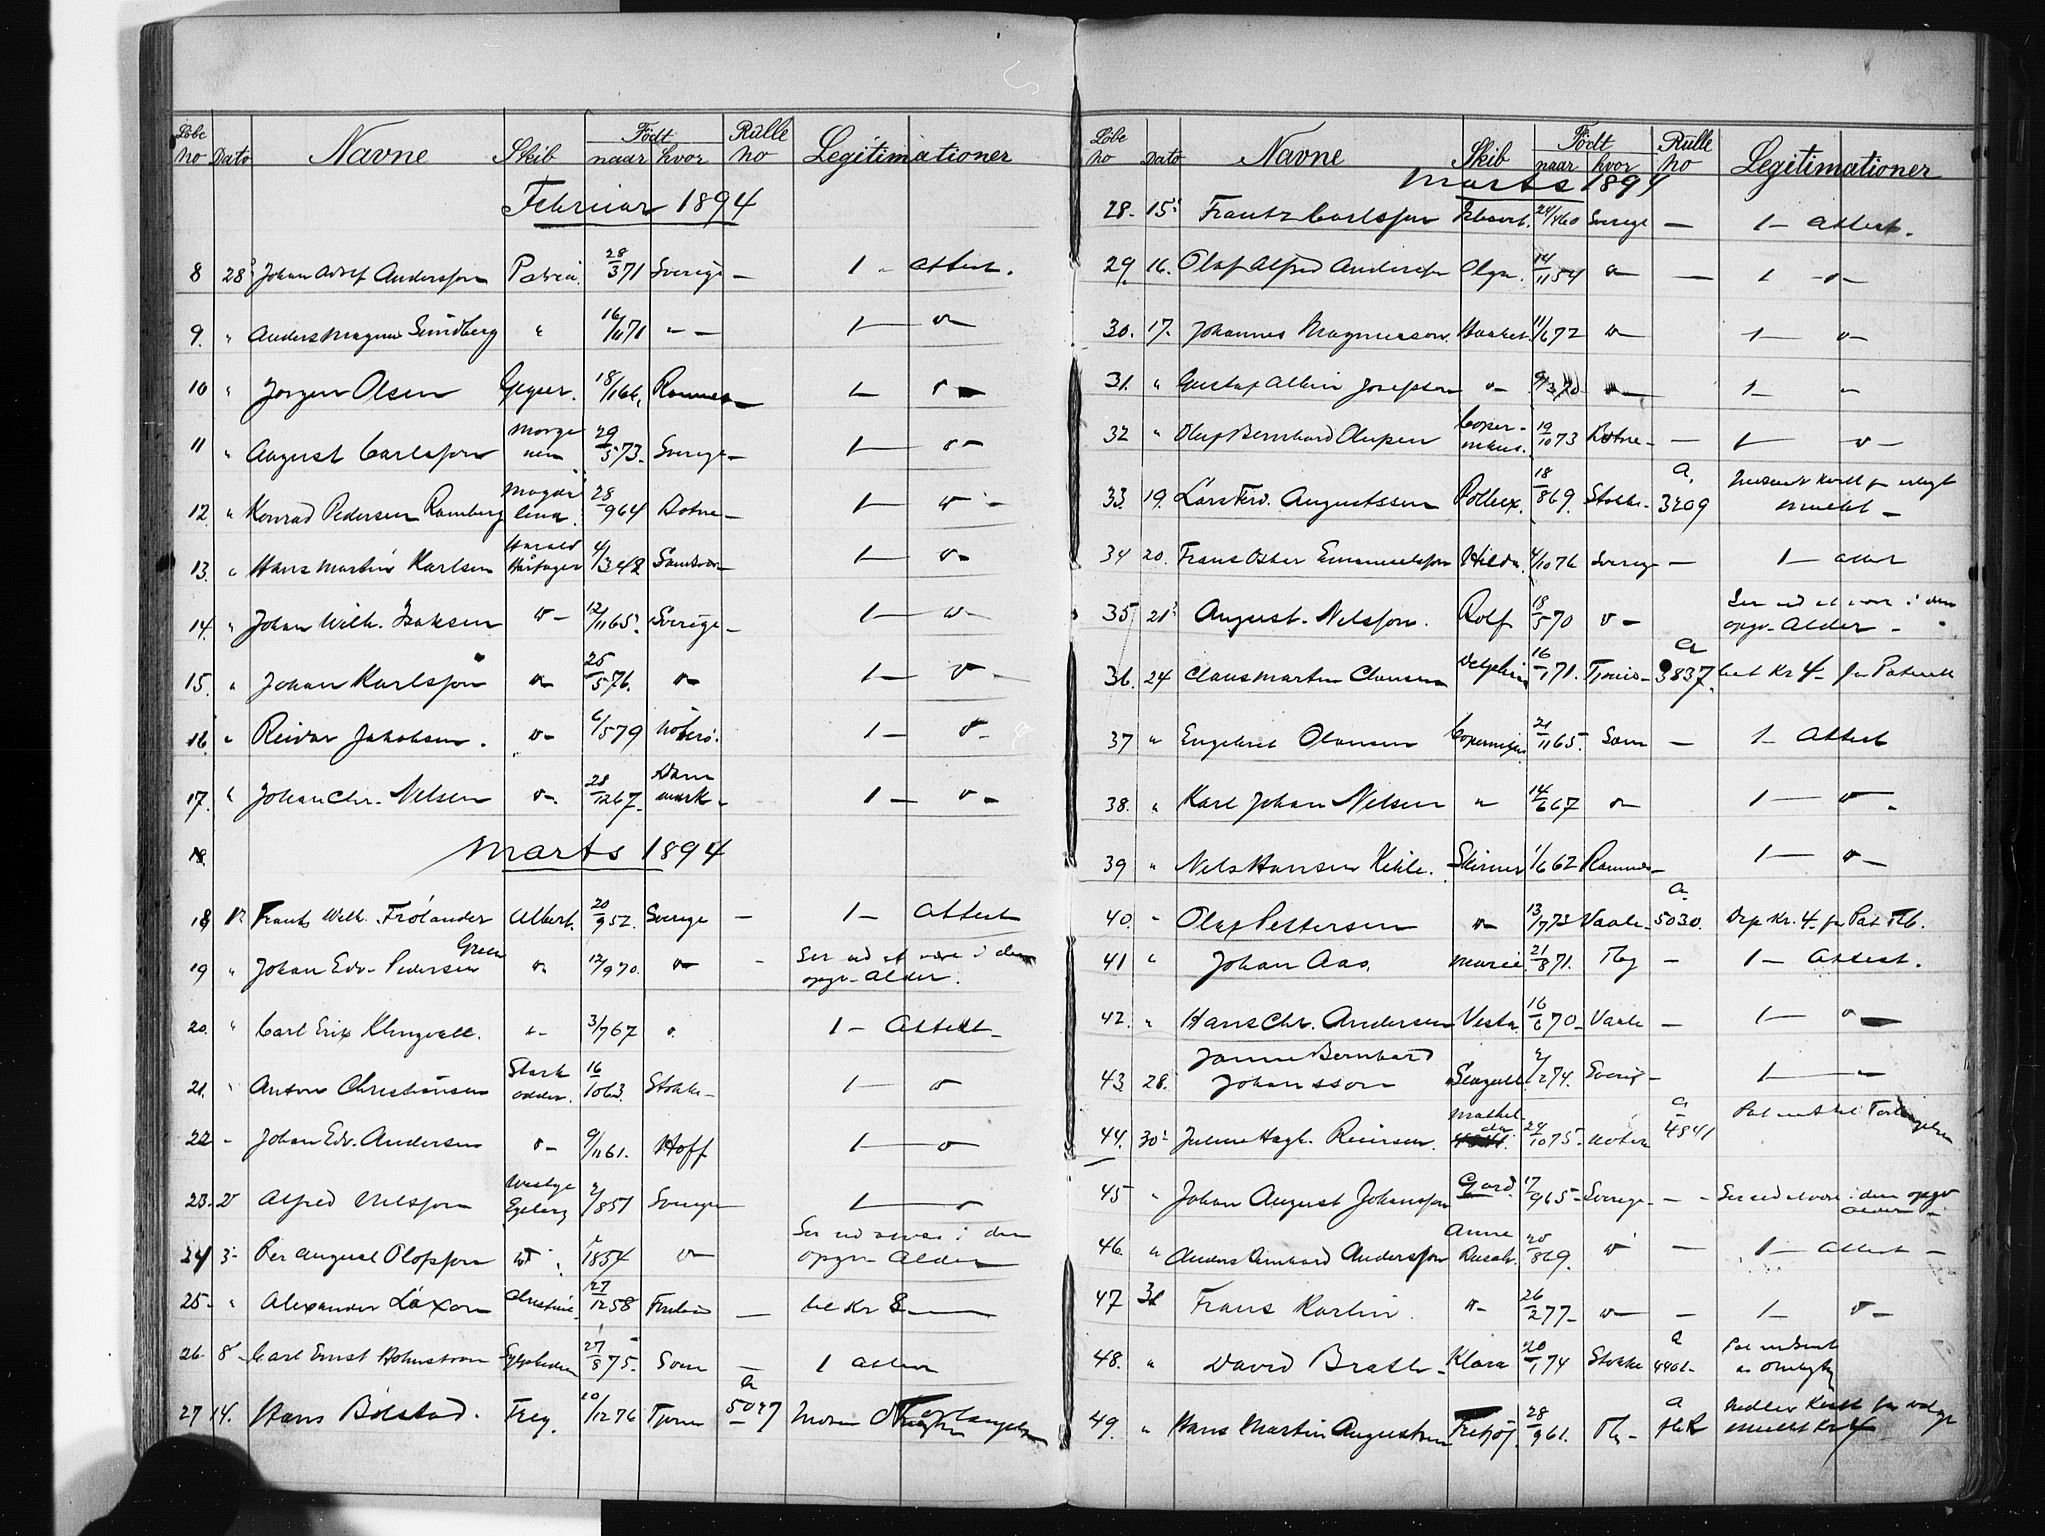 Løbe no Dato Navne Skib Født naar hvor Rulle no Legitimationer
Februar 1894
8 28 Johan Adolf Andersson Patria 28/3 71 Sverige - 1 - Attest.
9. " Anders Magnus Sundberg " 16/11 71 " - 1 - v -
10 " Jørgen Olsen Geyser. 18/1 66. Ramnes 1 - v -
11 " August Carlsson Morgenen 29/5 73. Sverige - 1 - v -
12 " Konrad Pedersen Ramberg Magdalina 28/9 64 Botne - 1 - v -
13. " Hans Martin Karlsen Harald Hårfager 4/3 48 1 - v -
14. " Johan Wilh. Isaksen v - 12/11 65. Sverige - 1 - v -
15. " Johan Karlsson v - 25/5 76. v - 1 - v -
16. " Reidar Jakobsen. v - 6/5 79 Nøterø. 1 - v -
17. " Johan Chr. Nelsen v - 28/12 67. Danmark - 1 - v -
Marts 1894
18
18 Frants Wilh. Frölander Albert. 20/9 52. Sverige - 1 - Attest
19 " Johan Edv. Pedersen Green v - 12/9 70. v - - Ser ud at være i den opgv. Alder.
20. " Carl Erik Klingvall. " - 3/7 67 v. 1 - Attest -
21. " Anton Christiansen Starkodder. 16/10 63. Stokke - 1 - v
22 - Johan Edv. Andersen v - 9/11 61. Hoff 1 - v
23. 2 Alfred Nelsson 2/8 51 Sverige 1 - v
24 3 - Per August Olofsson 1854 v - Ser ud at være i den opgv. Alder
25 - " Alexander Laxon Christine 27/12 58 - bet Kr 8 -
26 - 8 - Carl Ernst Holmstrøm 27/8 75. Som - 1 Attest
27 14. Hans Bolstad. Frey. 10/12 76 Tjømø a 5027
Løbe no Dato Navne Skib Født naar hvor Rulle no Legitimationer
Marts 1894
28 - 15 Frantz Carlsson 24/4 60 Sverige - 1 - Attest.
29. 16. Olaf Alfred Andersson Olga. 14/11 54 v - - 1 - v -
30. 17. Johannes Magnusson 11/6 72 v - 1 - v -
31. " Gustaf Albin Josefson v - 9/3 70 v - 1 - v
32 " Oluf Bernhard Olufsen Copernikus. 19/10 73 Botne - - 1 - v -
33. 19. Lars Ferd. Augustssen Pollux. 18/8 69. Stokke - a. 3209 mulkt -
34 20. Frans Oskar Emanuelsson Hilda. 4/10 76 Sverige - 1 - attest
35 21 August Nelsson. Rolf 18/5 70 v - Ser ud at være i den opgv. Alder -
36. 24 Claus Martin Clausen Delphin 16/1 71. a 3837. bet Kr 4 -
37 " Engebret Olausen Copernikus 21/11 65. Som - 1 - Attest
38. " Karl Johan Nelsen " 14/6 67 v - 1 - v -
39 " Nels Hansen Kihle. Skirner 1/6 62 Ramnes - 1 - v -
40. - Olaf Pettersen v - 13/7 73 Vaale - a 5030. Dep Kr. 4 -
41 " Johan Aas. Marie. 21/8 71. Tbg - 1 - Attest.
42. " Hans Chr. Andersen Vesta. 16/6 70 - Vaale - 1 - v
43. 28. Janne Bernhard Johansson Seagull 2/2 74. Sverig - 1 - -
44. 30 Julius Hagb. Reiersen. Mathilde 24/10 75 - Nøterø a 4841
45 " Johan August Johansson Gard. 17/9 65 - Sverige - - - Ser ud at være i den opgv Alder -
46. " Anders Bernhard Andersson Anna 20/8 69. v - 1 - Attest -
47 31 Frans Karlin v - 26/2 77 - v - - 1 - v -
48. " David Brath - Klara 20/1 74 Stokke a 4401 -
49. " Hans Martin Augustsen Fritjof. 28/9 61. Tbg - a mulkt Kr 4